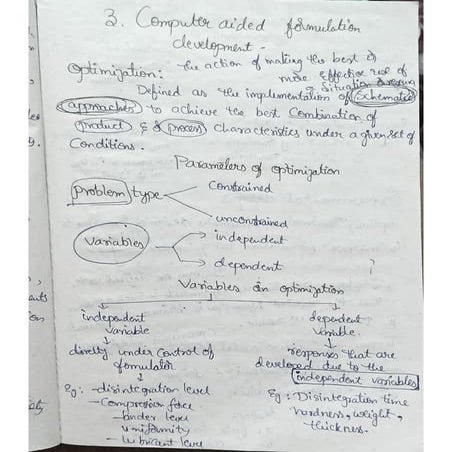 3. Computer aided formulation
development -
Optimization: the action of making the best &
most effective use of
situation
Defined as the implementation of Schematic
approaches to achieve the best Combination of
product & process characteristics under a given set of
Conditions.
Parameters of optimization
problem type
constrained
unconstrained
Variables
independent
dependent
Variables in optimization
independent
variable
dependent
variable
directly under control of
formulator
responses that are
developed due to the
independent variables
Eg: - disintegration level
- Compression force
- binder level
uniformity
- lubricant level
Eg: Disintegration time
hardness, weight,
thickness.